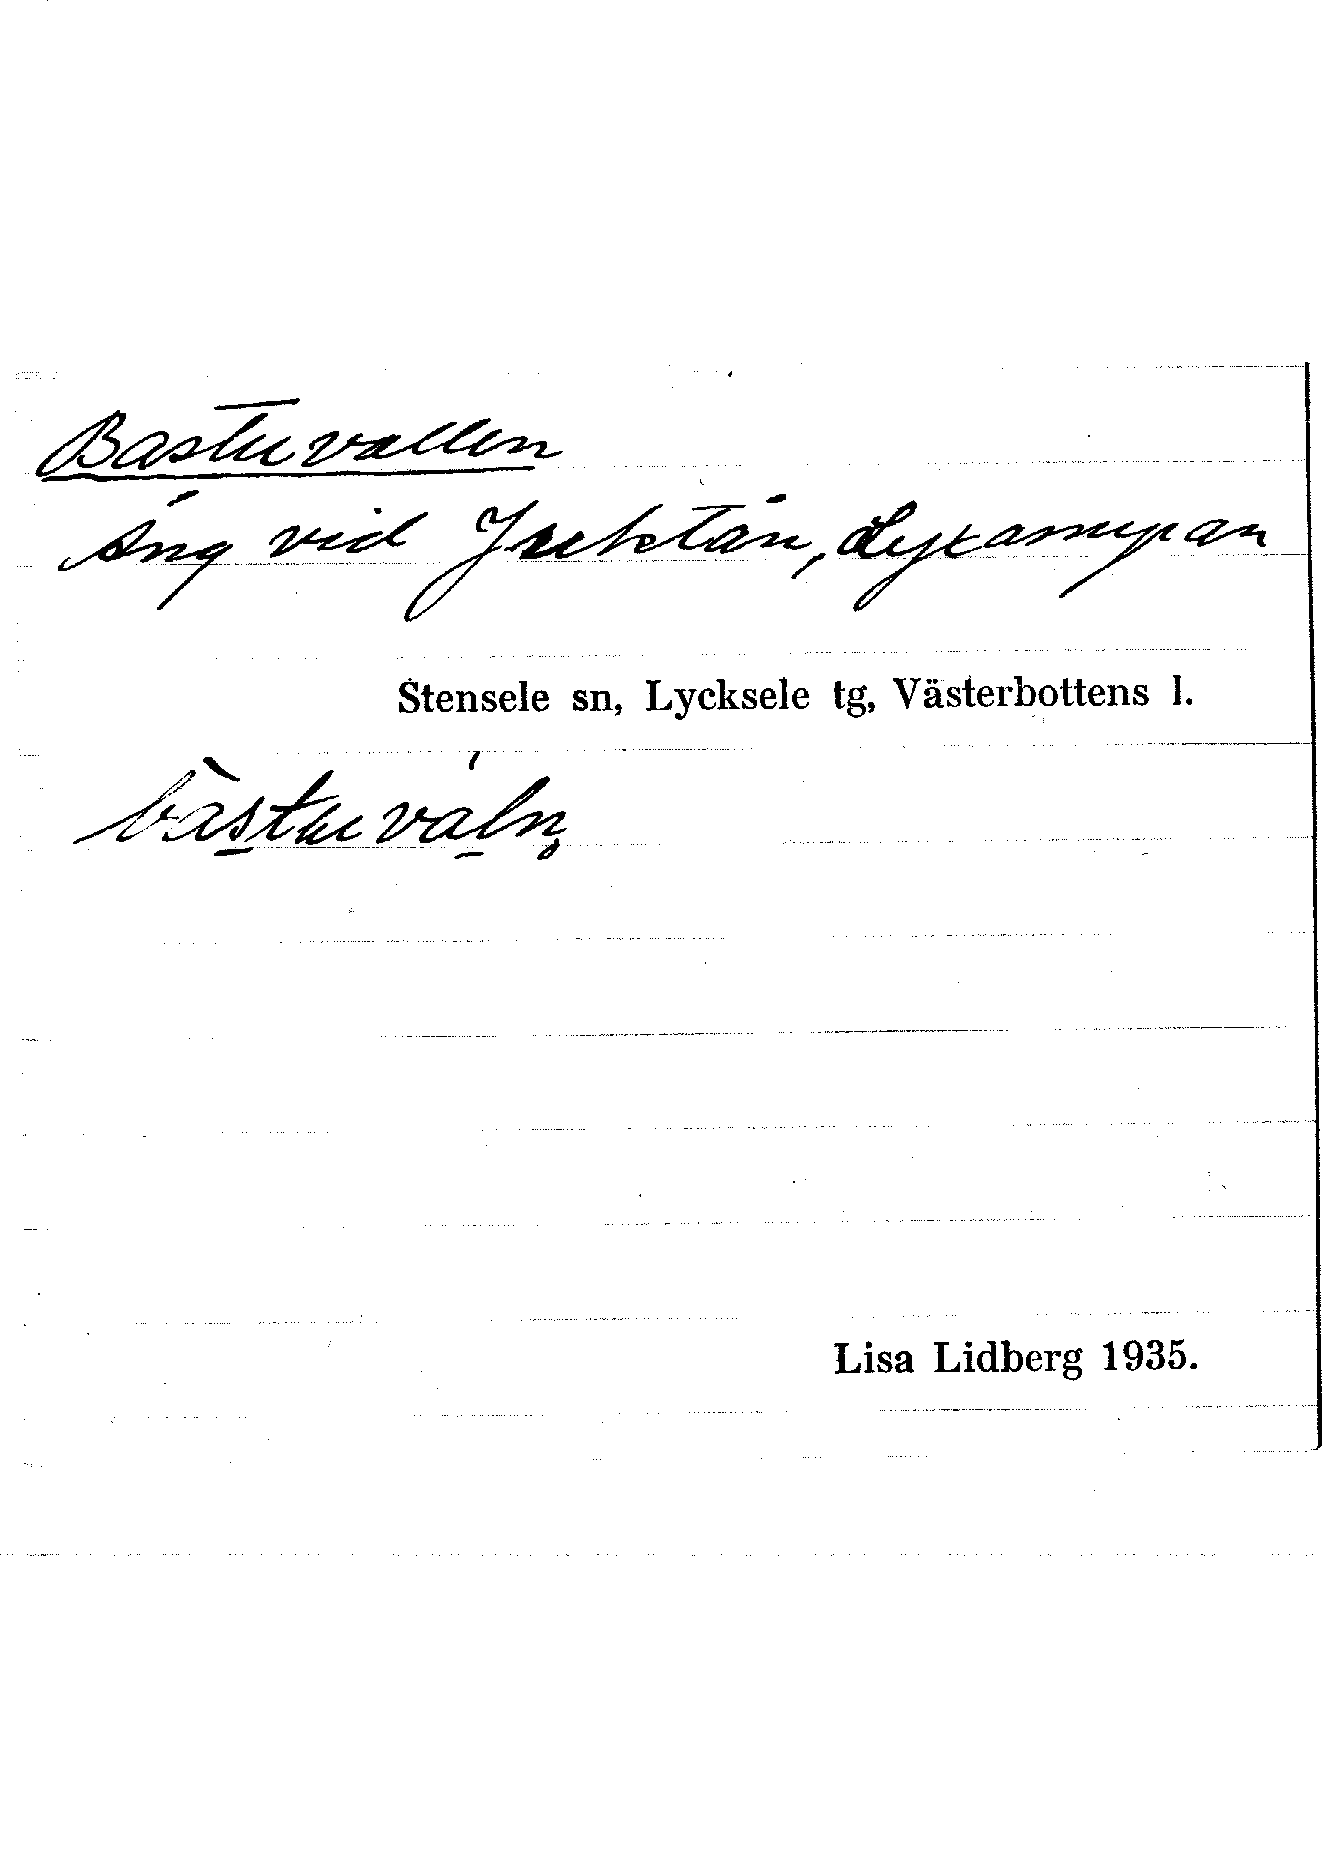 Bastuvallen
Äng vid Juktån, Lyxamyran
Stensele sn, Lycksele tg, Västerbottens l.
bàstuvàln̥
Lisa Lidberg 1935.